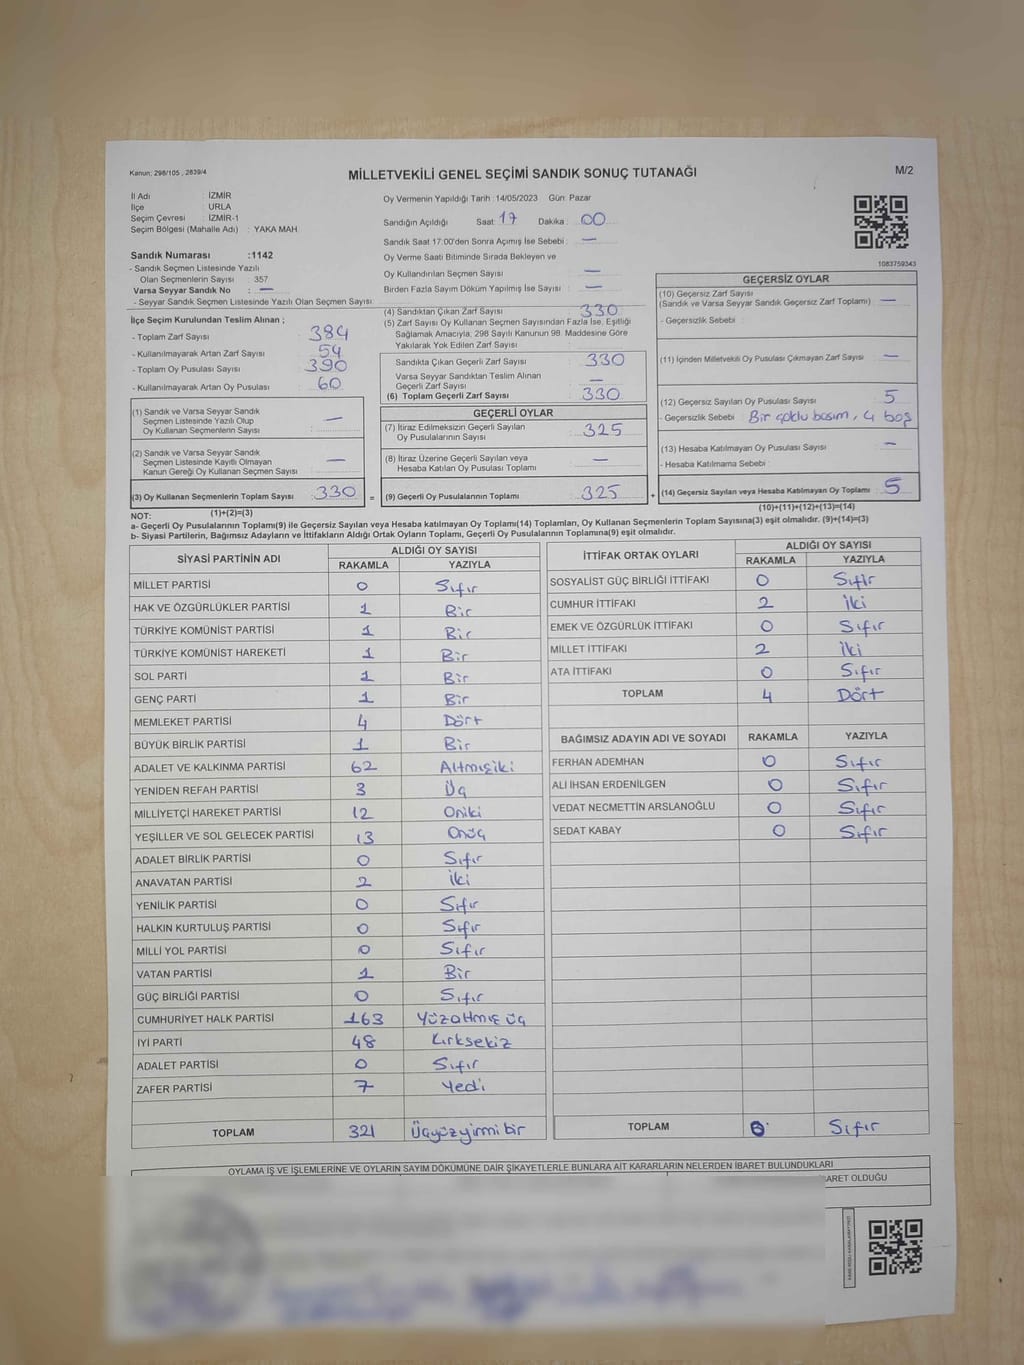 Kanun: 298/105 , 2839/4
MİLLETVEKİLİ GENEL SEÇİMİ SANDIK SONUÇ TUTANAĞI
M/2
İl Adı : İZMİR
İlçe : URLA
Seçim Çevresi : İZMİR-1
Seçim Bölgesi (Mahalle Adı) : YAKA MAH.
Oy Vermenin Yapıldığı Tarih : 14/05/2023 Gün: Pazar
Sandığın Açıldığı Saat: 17 Dakika : 00
Sandık Saat 17:00'den Sonra Açımış İse Sebebi : —
Oy Verme Saati Bitiminde Sırada Bekleyen ve
Oy Kullandırılan Seçmen Sayısı : —
Birden Fazla Sayım Döküm Yapılmış İse Sayısı : —
1083759343
Sandık Numarası :1142
- Sandık Seçmen Listesinde Yazılı
Olan Seçmenlerin Sayısı : 357
Varsa Seyyar Sandık No : —
- Seyyar Sandık Seçmen Listesinde Yazılı Olan Seçmen Sayısı:
İlçe Seçim Kurulundan Teslim Alınan ;
- Toplam Zarf Sayısı : 384
- Kullanılmayarak Artan Zarf Sayısı : 54
- Toplam Oy Pusulası Sayısı : 390
- Kullanılmayarak Artan Oy Pusulası : 60
(1) Sandık ve Varsa Seyyar Sandık
Seçmen Listesinde Yazılı Olup
Oy Kullanan Seçmenlerin Sayısı : —
(2) Sandık ve Varsa Seyyar Sandık
Seçmen Listesinde Kayıtlı Olmayan
Kanun Gereği Oy Kullanan Seçmen Sayısı : —
(3) Oy Kullanan Seçmenlerin Toplam Sayısı : 330 =
(1)+(2)=(3)
(4) Sandıktan Çıkan Zarf Sayısı : 330
(5) Zarf Sayısı Oy Kullanan Seçmen Sayısından Fazla İse, Eşitliği
Sağlamak Amacıyla, 298 Sayılı Kanunun 98. Maddesine Göre
Yakılarak Yok Edilen Zarf Sayısı :
Sandıkta Çıkan Geçerli Zarf Sayısı : 330
Varsa Seyyar Sandıktan Teslim Alınan
Geçerli Zarf Sayısı : —
(6) Toplam Geçerli Zarf Sayısı : 330
GEÇERLİ OYLAR
(7) İtiraz Edilmeksizin Geçerli Sayılan
Oy Pusulalarının Sayısı : 325
(8) İtiraz Üzerine Geçerli Sayılan veya
Hesaba Katılan Oy Pusulası Toplamı : —
(9) Geçerli Oy Pusulalarının Toplamı : 325 +
GEÇERSİZ OYLAR
(10) Geçersiz Zarf Sayısı
(Sandık ve Varsa Seyyar Sandık Geçersiz Zarf Toplamı) : —
- Geçersizlik Sebebi :
(11) İçinden Milletvekili Oy Pusulası Çıkmayan Zarf Sayısı : —
(12) Geçersiz Sayılan Oy Pusulası Sayısı : 5
- Geçersizlik Sebebi : Bir çoklu basım, 4 boş
(13) Hesaba Katılmayan Oy Pusulası Sayısı : —
- Hesaba Katılmama Sebebi :
(14) Geçersiz Sayılan veya Hesaba Katılmayan Oy Toplamı : 5
(10)+(11)+(12)+(13)=(14)
NOT:
a- Geçerli Oy Pusulalarının Toplamı(9) ile Geçersiz Sayılan veya Hesaba katılmayan Oy Toplamı(14) Toplamları, Oy Kullanan Seçmenlerin Toplam Sayısına(3) eşit olmalıdır. (9)+(14)=(3)
b- Siyasi Partilerin, Bağımsız Adayların ve İttifakların Aldığı Ortak Oyların Toplamı, Geçerli Oy Pusulalarının Toplamına(9) eşit olmalıdır.
SİYASİ PARTİNİN ADI ALDIĞI OY SAYISI
RAKAMLA YAZIYLA
MİLLET PARTİSİ 0 Sıfır
HAK VE ÖZGÜRLÜKLER PARTİSİ 1 Bir
TÜRKİYE KOMÜNİST PARTİSİ 1 Bir
TÜRKİYE KOMÜNİST HAREKETİ 1 Bir
SOL PARTİ 1 Bir
GENÇ PARTİ 1 Bir
MEMLEKET PARTİSİ 4 Dört
BÜYÜK BİRLİK PARTİSİ 1 Bir
ADALET VE KALKINMA PARTİSİ 62 Altmışiki
YENİDEN REFAH PARTİSİ 3 Üç
MİLLİYETÇİ HAREKET PARTİSİ 12 Oniki
YEŞİLLER VE SOL GELECEK PARTİSİ 13 Onüç
ADALET BİRLİK PARTİSİ 0 Sıfır
ANAVATAN PARTİSİ 2 İki
YENİLİK PARTİSİ 0 Sıfır
HALKIN KURTULUŞ PARTİSİ 0 Sıfır
MİLLİ YOL PARTİSİ 0 Sıfır
VATAN PARTİSİ 1 Bir
GÜÇ BİRLİĞİ PARTİSİ 0 Sıfır
CUMHURİYET HALK PARTİSİ 163 Yüzaltmış üç
İYİ PARTİ 48 Kırksekiz
ADALET PARTİSİ 0 Sıfır
ZAFER PARTİSİ 7 Yedi
TOPLAM 321 Üçyüzyirmi bir
İTTİFAK ORTAK OYLARI ALDIĞI OY SAYISI
RAKAMLA YAZIYLA
SOSYALİST GÜÇ BİRLİĞİ İTTİFAKI 0 Sıfır
CUMHUR İTTİFAKI 2 İki
EMEK VE ÖZGÜRLÜK İTTİFAKI 0 Sıfır
MİLLET İTTİFAKI 2 İki
ATA İTTİFAKI 0 Sıfır
TOPLAM 4 Dört
BAĞIMSIZ ADAYIN ADI VE SOYADI RAKAMLA YAZIYLA
FERHAN ADEMHAN 0 Sıfır
ALİ İHSAN ERDENİLGEN 0 Sıfır
VEDAT NECMETTİN ARSLANOĞLU 0 Sıfır
SEDAT KABAY 0 Sıfır
TOPLAM 0 Sıfır
OYLAMA İŞ VE İŞLEMLERİNE VE OYLARIN SAYIM DÖKÜMÜNE DAİR ŞİKAYETLERLE BUNLARA AİT KARARLARIN NELERDEN İBARET BULUNDUKLARI
BARET OLDUĞU